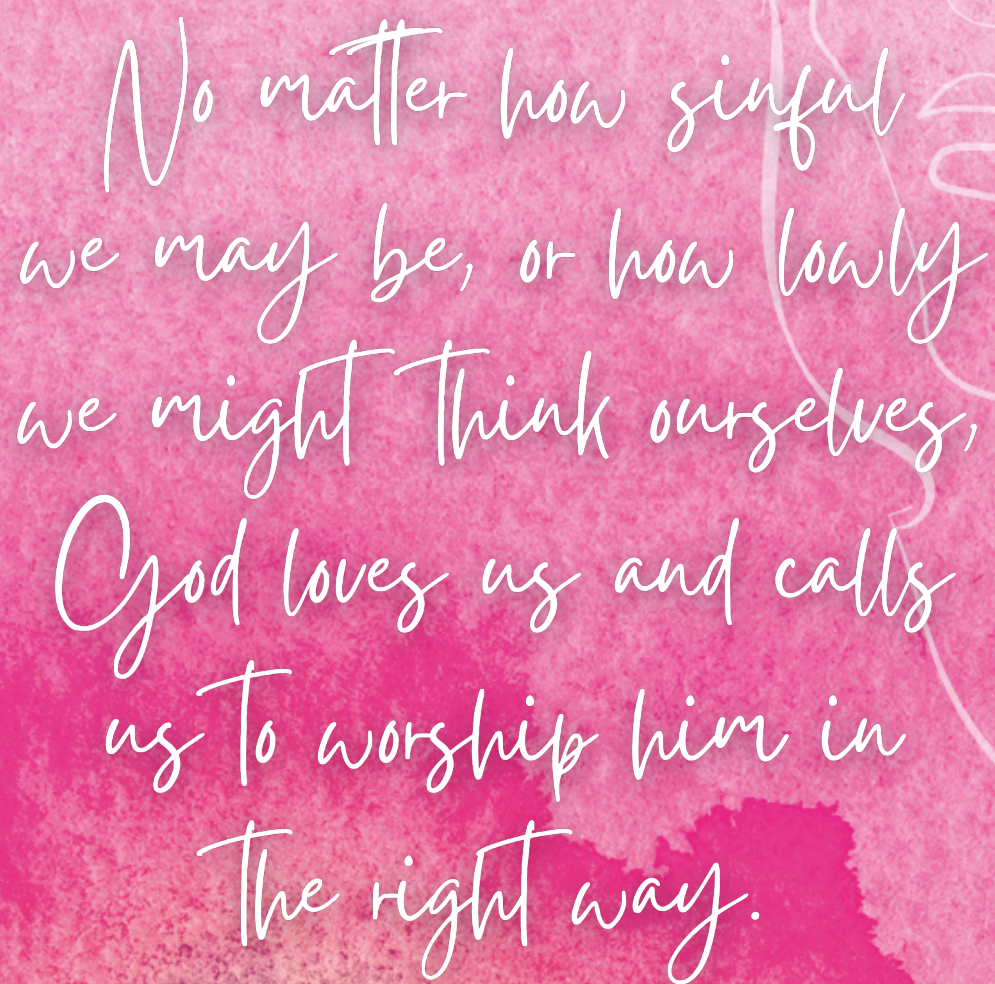 No matter how sinful
we may be, or how lowly
we might think ourselves,
God loves us and calls
us to worship him in
the right way.